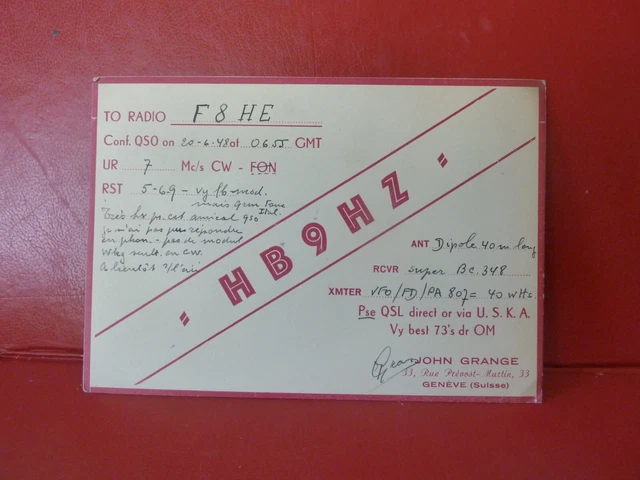 TO RADIO F8HE
Conf. QSO on 20-6-48 at 06.55 GMT
UR 7 Mc/s CW - FON
RST 5-6-9 - vy fb mod.
mais qrm fone
Ital.
Très hx pr. cet amical qso
je n'ai pas pu répondre
en phon. - pas de modul
Wkg seult. en CW.
A bientôt
HB9HZ
ANT Dipole 40 m long
RCVR super BC.348
XMTER VFO/FD/PA 807 = 40 wtts.
Pse QSL direct or via U. S. K. A.
Vy best 73's dr OM
JOHN GRANGE
33, Rue Prévost-Martin, 33
GENÈVE (Suisse)